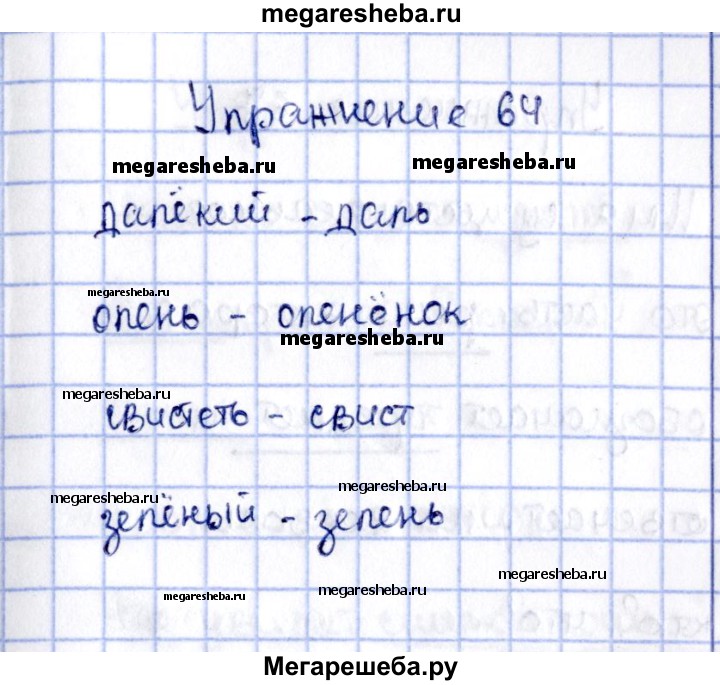 megaresheba.ru
Упражнение 64
megaresheba.ru
megaresheba.ru
далёкий - даль
megaresheba.ru
олень - оленёнок
megaresheba.ru
megaresheba.ru
свистеть - свист
megaresheba.ru
megaresheba.ru
зелёный - зелень
megaresheba.ru
megaresheba.ru
megaresheba.ru
Мегарешеба.ру